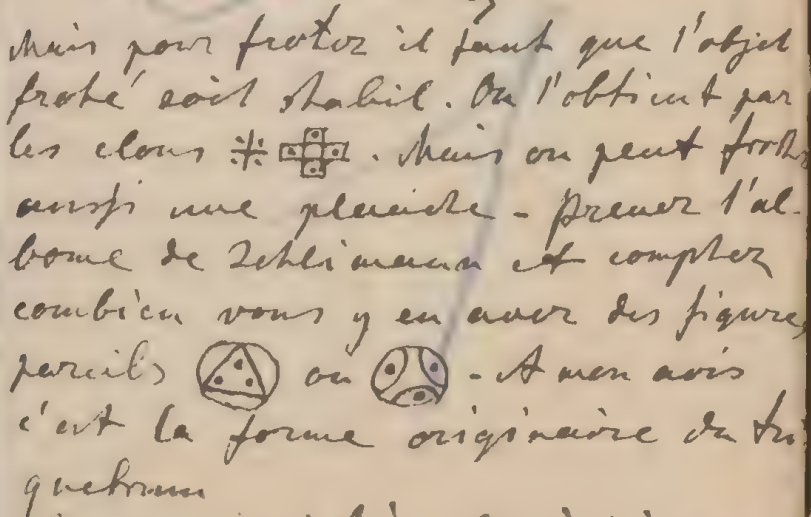 Mais pour frotez il faut que l'objet
froté soit stabil. On l'obtient par
les clous . Mais on peut frotter
aussi une planche - prenez l'al-
bome de Schlimann et comptez
combien vous y en avez des figures
pareils ou - A mon avis
c'est la forme originaire du tri
quetrum